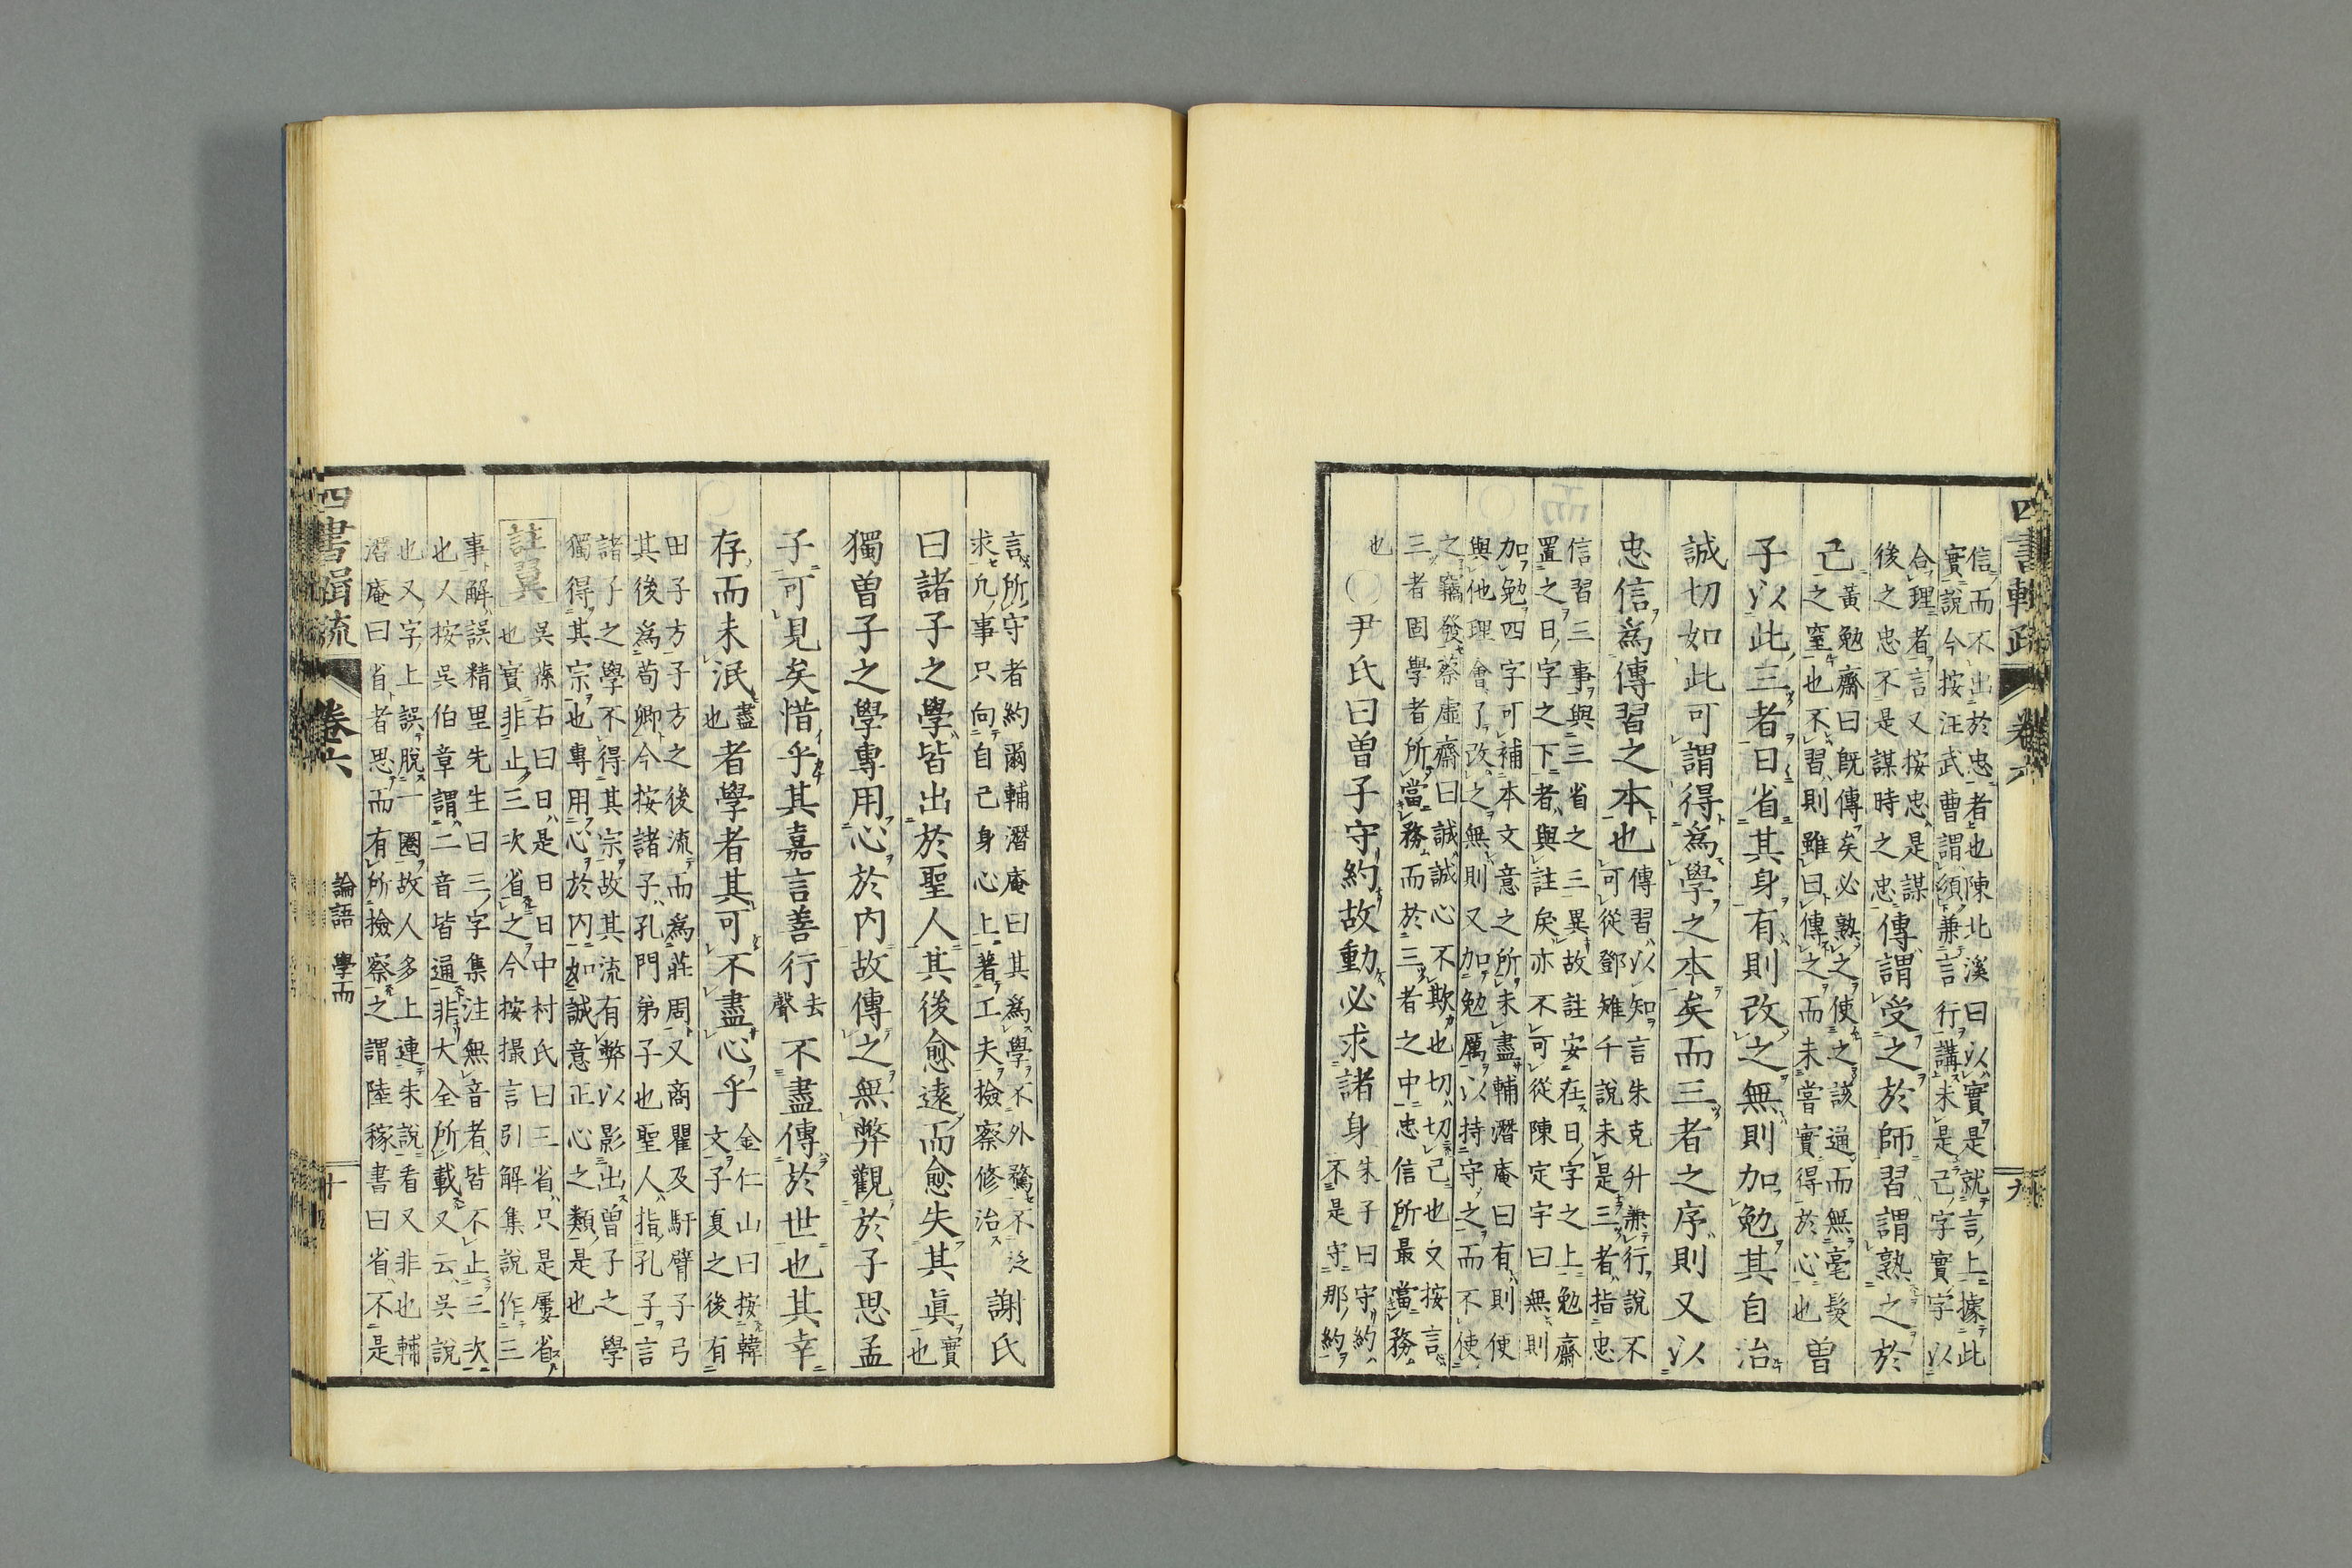 信而不出於忠者也陳北溪曰以實是就言上據此
實說今按汪武曹謂須兼言行講未是己字實字以
合理者言又按忠是謀
後之忠不是謀時之忠
傳謂受之於師習謂熟之於
己
黃勉齋曰既傳矣必熟之使之該通而無毫髮
之窒也不習則雖曰傳之而未嘗實得於心也
曾
子以此三者日省其身有則改之無則加勉其自治
誠切如此可謂得爲學之本矣而三者之序則又以
忠信爲傳習之本也
傳習以知言朱克升兼行說不
可從鄧雉千說未是三者指忠
信習三事與三省之三異故註安在日字之上勉齋
置之日字之下者與註戾亦不可從陳定宇曰無則
加勉四字可補本文意之所未盡輔潛庵曰有則便
與他理會了改之無則又加勉厲以持守之而不使
之竊發蔡虛齋曰誠誠心不欺也切切己也又按言
三者固學者所當務而於三者之中忠信所最當務
也
○尹氏曰曾子守約故動必求諸身
朱子曰守約
不是守那約
四書輯疏 卷六 九
言所守者約爾輔潛庵曰其爲學不外騖不泛
求凡事只向自己身心上著工夫檢察修治
謝氏
曰諸子之學皆出於聖人其後愈遠而愈失其眞
實
也
獨曾子之學專用心於内故傳之無弊觀於子思孟
子可見矣惜乎其嘉言善行
去
聲
不盡傳於世也其幸
存而未泯
盡
也
者學者其可不盡心乎
金仁山曰按韓
文子夏之後有
田子方子方之後流而爲莊周又商瞿及馯臂子弓
其後爲荀卿今按諸子孔門弟子也聖人指孔子言
諸子之學不得其宗故其流有弊以影出曾子之學
獨得其宗也專用心於内如誠意正心之類是也
註翼
吳蓀右曰日是日日中村氏曰三省只是屢省
也實非止三次省之今按撮言引解集說作三
事解誤精里先生曰三字集注無音者皆不止三次
也又按吳伯章謂二音皆通非大全所載又云吳說
也又字上誤脫一圈故人多上連朱說看又非也輔
潛庵曰省者思而有所檢察之謂陸稼書曰省不是
四書輯疏 卷六 論語 學而 十